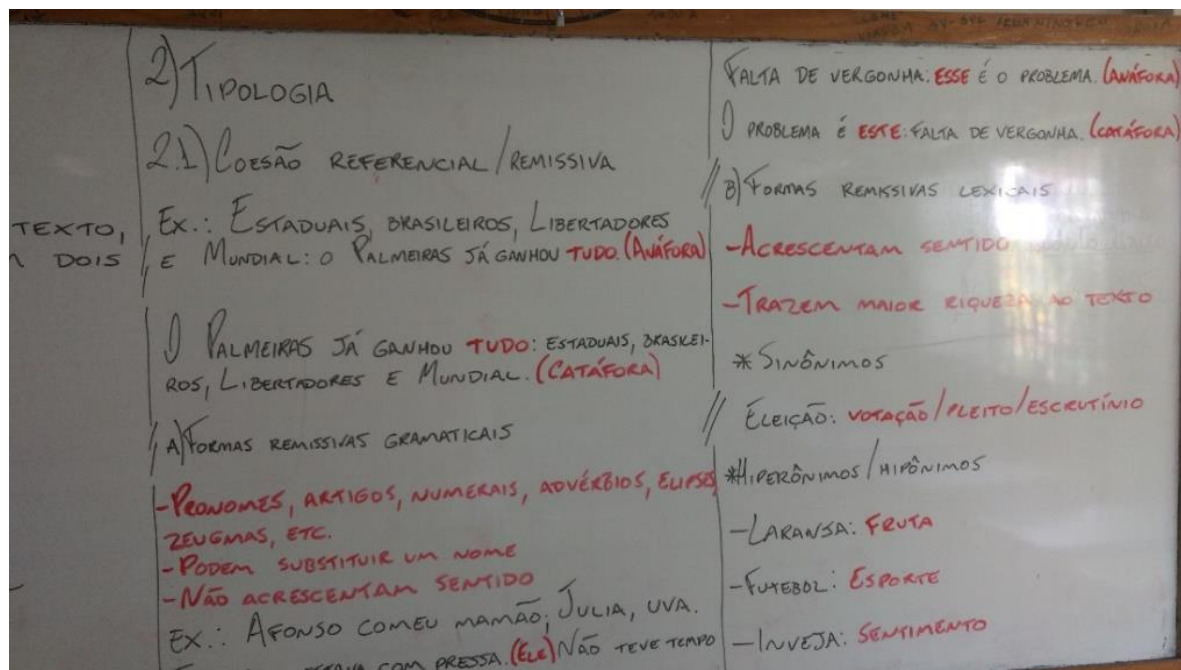 TEXTO,
DOIS
2) TIPOLOGIA
2.1) COESÃO REFERENCIAL/REMISSIVA
EX.: ESTADUAIS, BRASILEIROS, LIBERTADORES
E MUNDIAL: O PALMEIRAS JÁ GANHOU TUDO. (ANÁFORA)
O PALMEIRAS JÁ GANHOU TUDO: ESTADUAIS, BRASILEI-
ROS, LIBERTADORES E MUNDIAL. (CATÁFORA)
A) FORMAS REMISSIVAS GRAMATICAIS
-PRONOMES, ARTIGOS, NUMERAIS, ADVÉRBIOS, ELIPSES,
ZEUGMAS, ETC.
-PODEM SUBSTITUIR UM NOME
-NÃO ACRESCENTAM SENTIDO
EX.: AFONSO COMEU MAMÃO; JULIA, UVA.
COM PRESSA. (ELE) NÃO TEVE TEMPO
FALTA DE VERGONHA: ESSE É O PROBLEMA. (ANÁFORA)
O PROBLEMA É ESTE: FALTA DE VERGONHA. (CATÁFORA)
B) FORMAS REMISSIVAS LEXICAIS
-ACRESCENTAM SENTIDO
-TRAZEM MAIOR RIQUEZA AO TEXTO
*SINÔNIMOS
ELEIÇÃO: VOTAÇÃO/PLEITO/ESCRUTÍNIO
*HIPERÔNIMOS/HIPÔNIMOS
-LARANJA: FRUTA
-FUTEBOL: ESPORTE
-INVEJA: SENTIMENTO